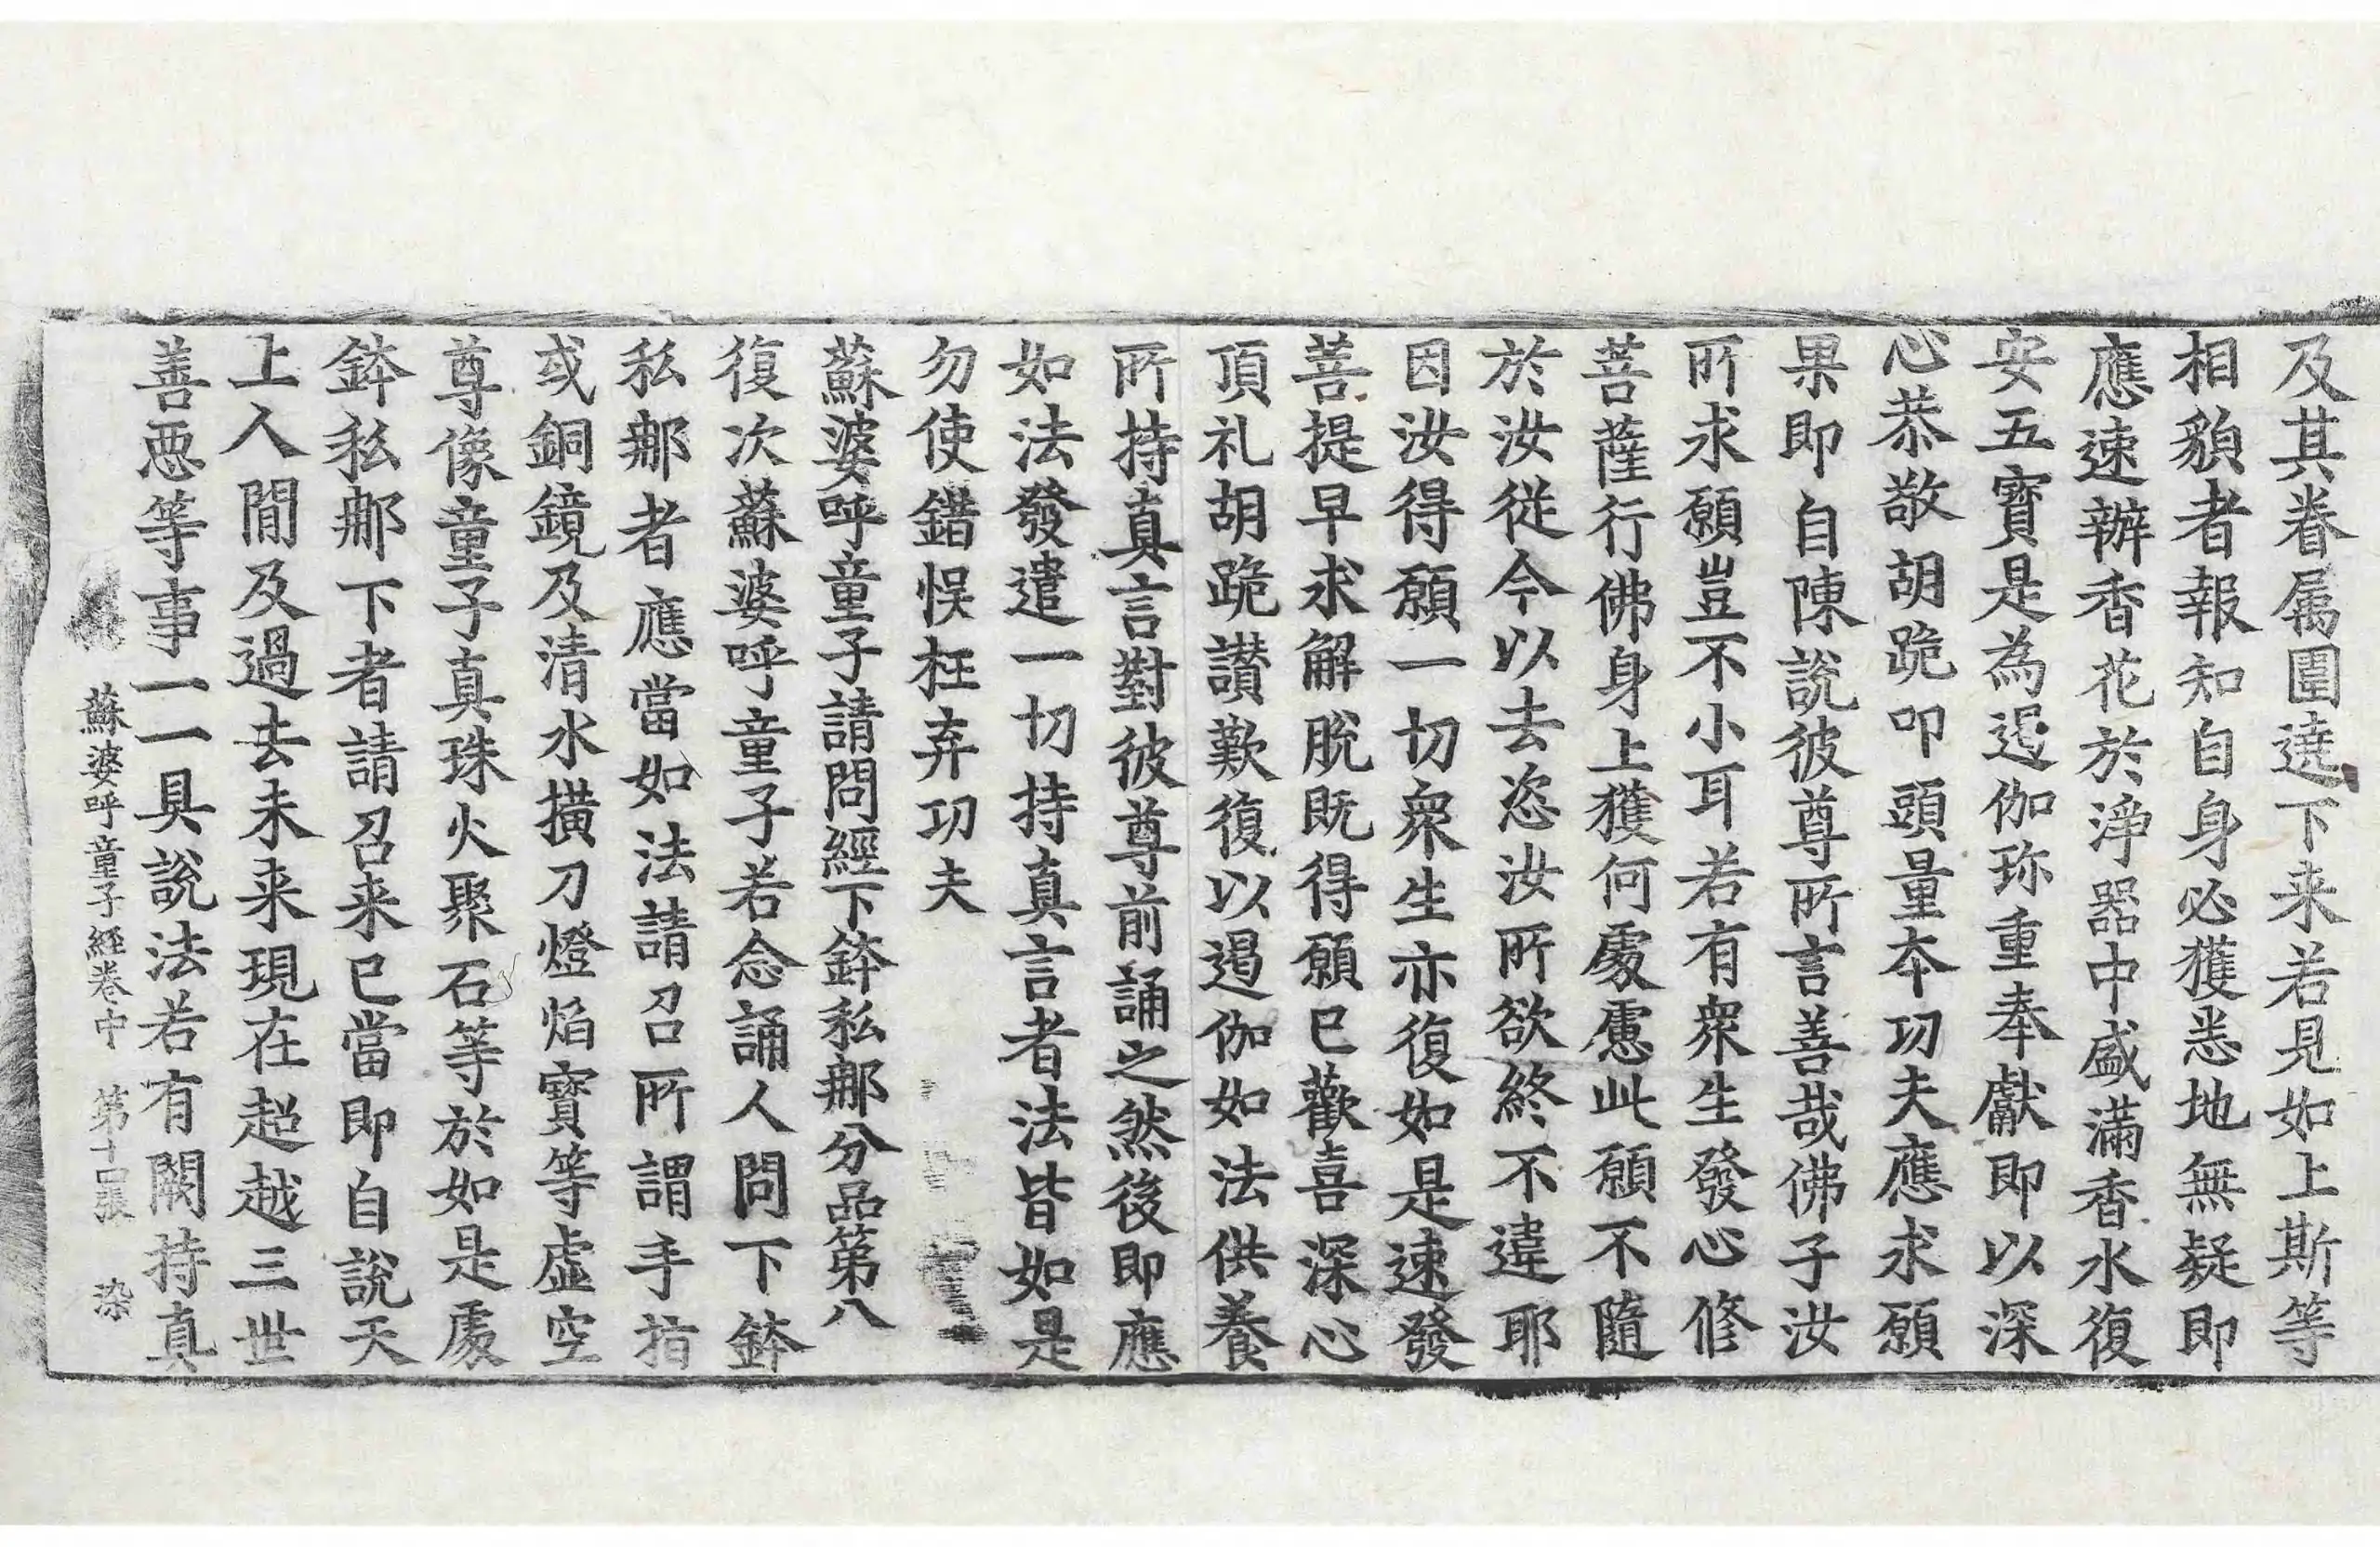 及其眷属圍遶下来若見如上斯等
相貌者報知自身必獲悉地無疑即
應速辦香花於淨器中盛滿香水復
安五寶是為遏伽珎重奉獻即以深
心恭敬胡跪叩頭量夲功夫應求願
果即自陳說彼尊所言善哉佛子汝
所求願豈不小耳若有衆生發心修
菩薩行佛身上獲何處慮此願不隨
於汝從今以去恣汝所欲終不違耶
因汝得願一切衆生亦復如是速發
菩提早求解脫既得願已歡喜深心
頂礼胡跪讃歎復以遏伽如法供養
所持真言對彼尊前誦之然後即應
如法發遣一切持真言者法皆如是
勿使錯悮枉弃功夫
蘇婆呼童子請問經下鉢私那分品第八
復次蘇婆呼童子若念誦人問下鉢
私那者應當如法請召所謂手指
或銅鏡及清水撗刀燈焰寶等虛空
尊像童子真珠火聚石等於如是處
鉢私那下者請召来已當即自說天
上人間及過去未来現在超越三世
善惡等事一一具說法若有闕持真
蘇婆呼童子經卷中 第十四張 染